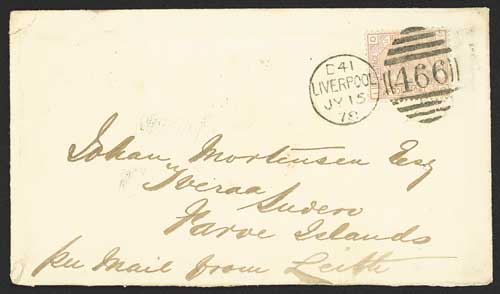 D41
LIVERPOOL
JY 15
78
466
Johan Mortensen Esq
Tveraa
Sudero
Faroe Islands
per Mail from Leith